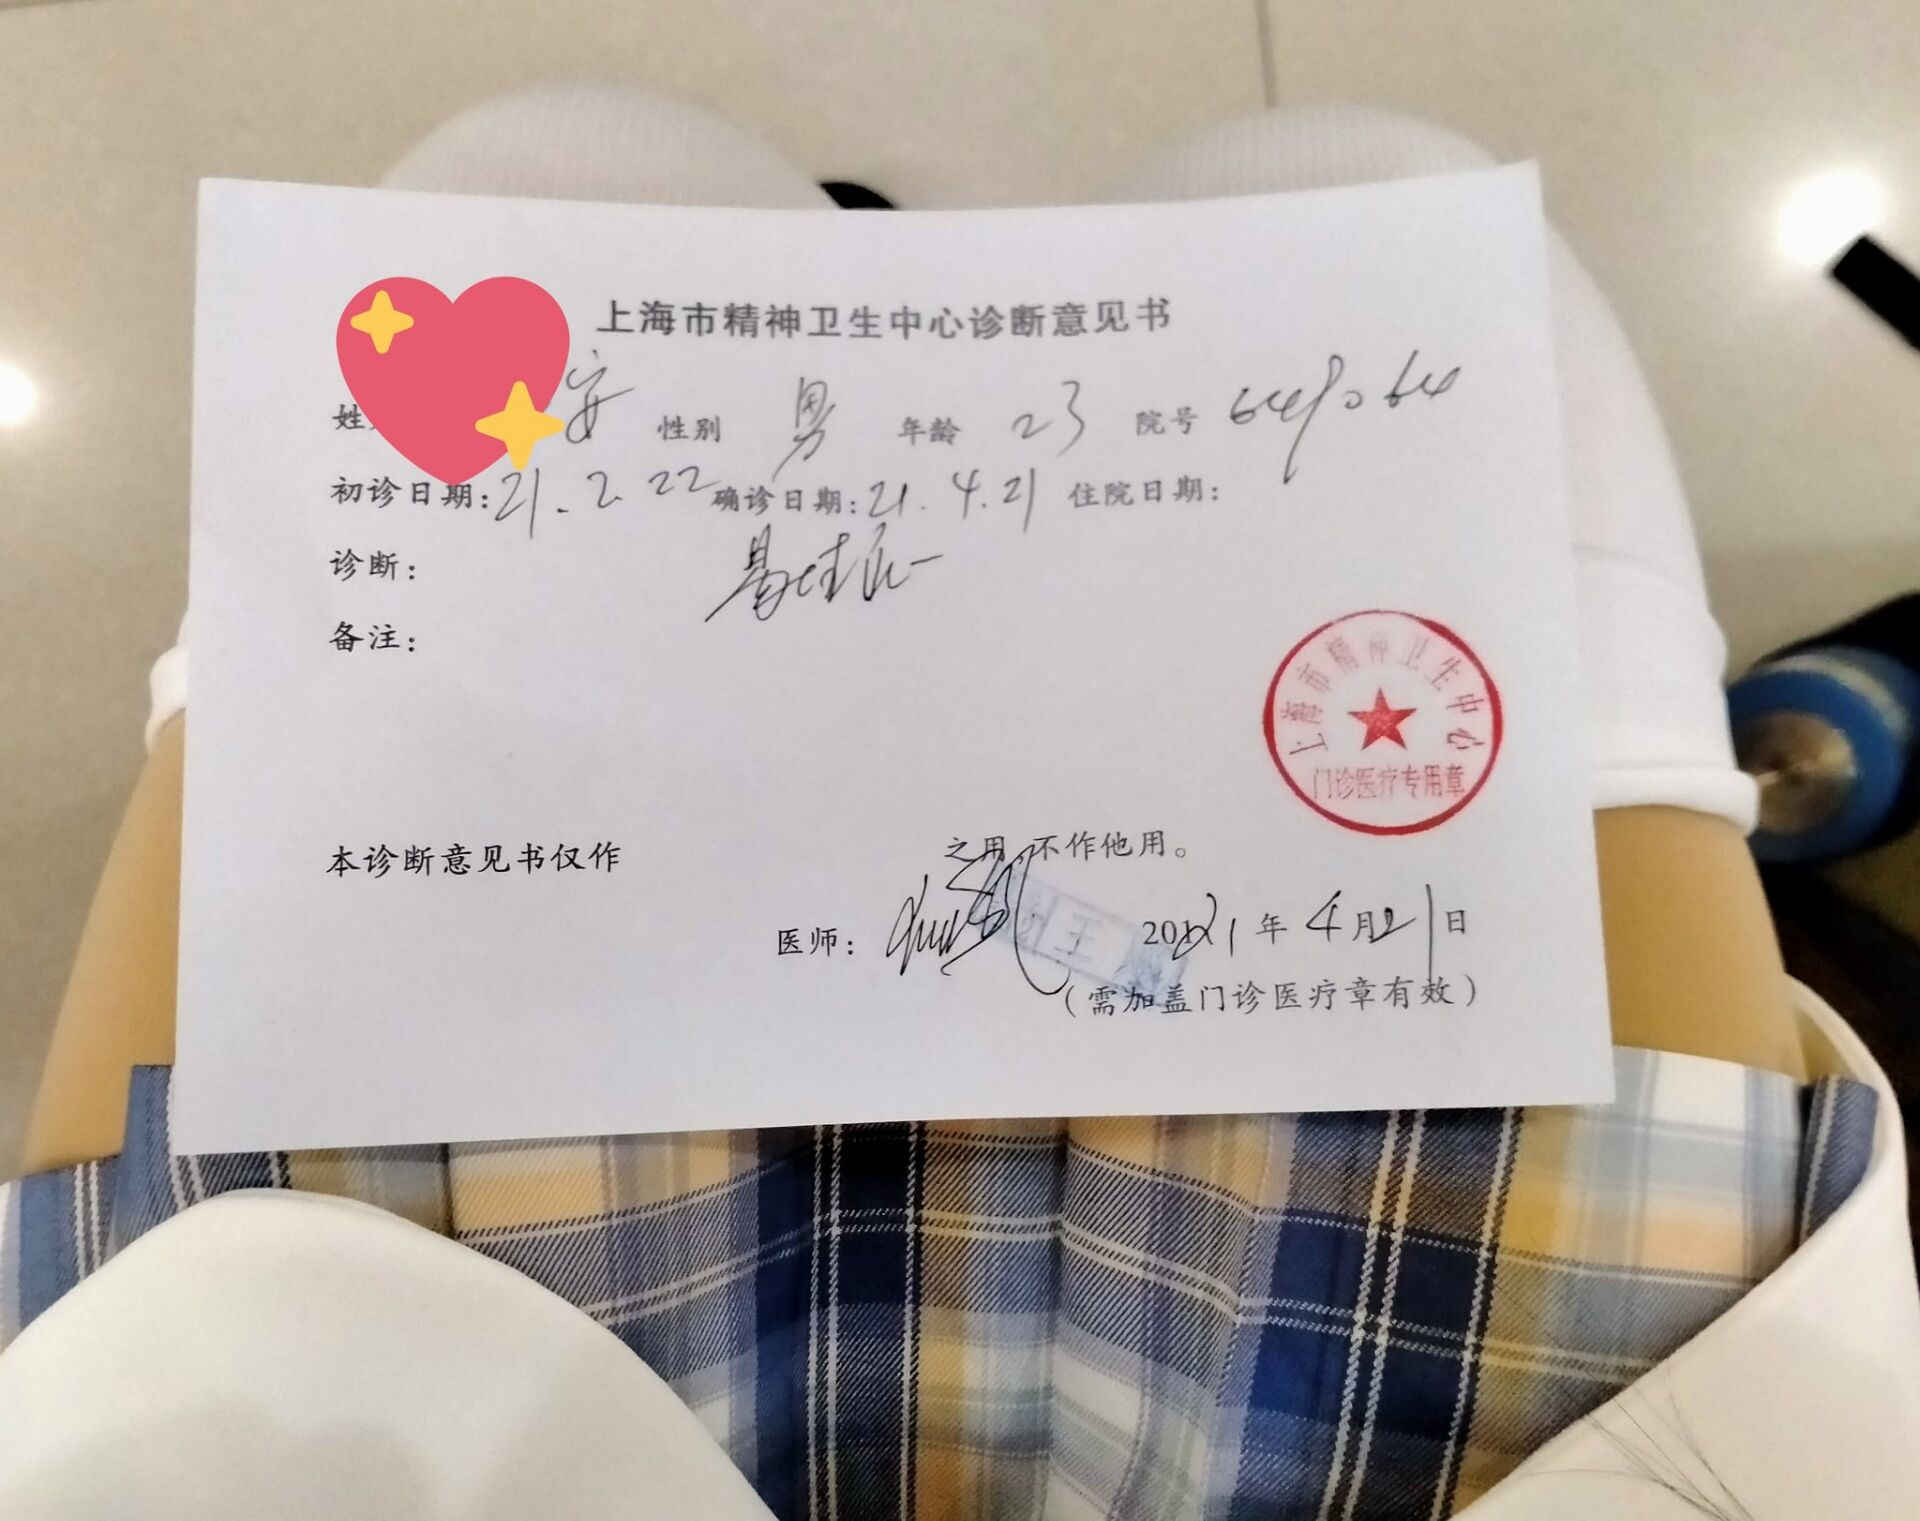 上海市精神卫生中心诊断意见书
姓 安 性别 男 年龄 23 院号 649064
初诊日期:21.2.22 确诊日期:21.4.21 住院日期:
诊断: 易性症
备注:
上海市精神卫生中心
门诊医疗专用章
本诊断意见书仅作 之用,不作他用。
医师: 王 2021年4月21日
(需加盖门诊医疗章有效)